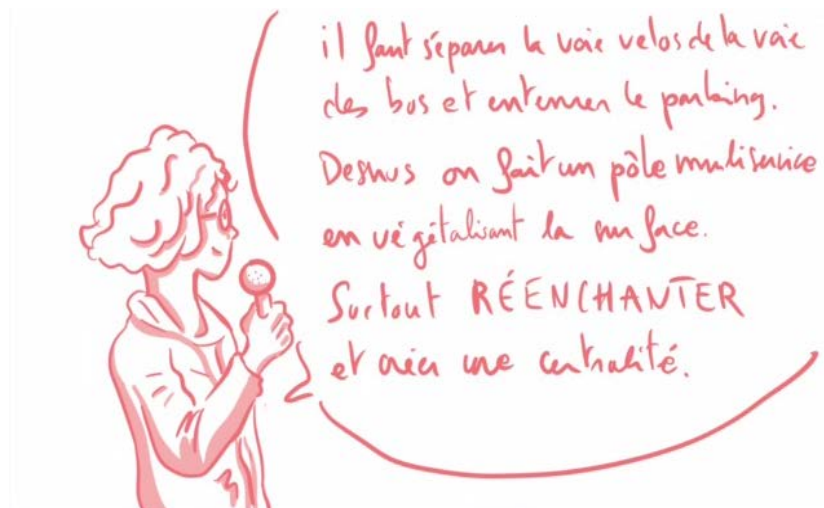 il faut séparer la voie velos de la voie
des bus et enterrer le parking.
Dessus on fait un pôle muliservice
en végétalisant la surface.
Surtout RÉENCHANTER
et créer une centralité.